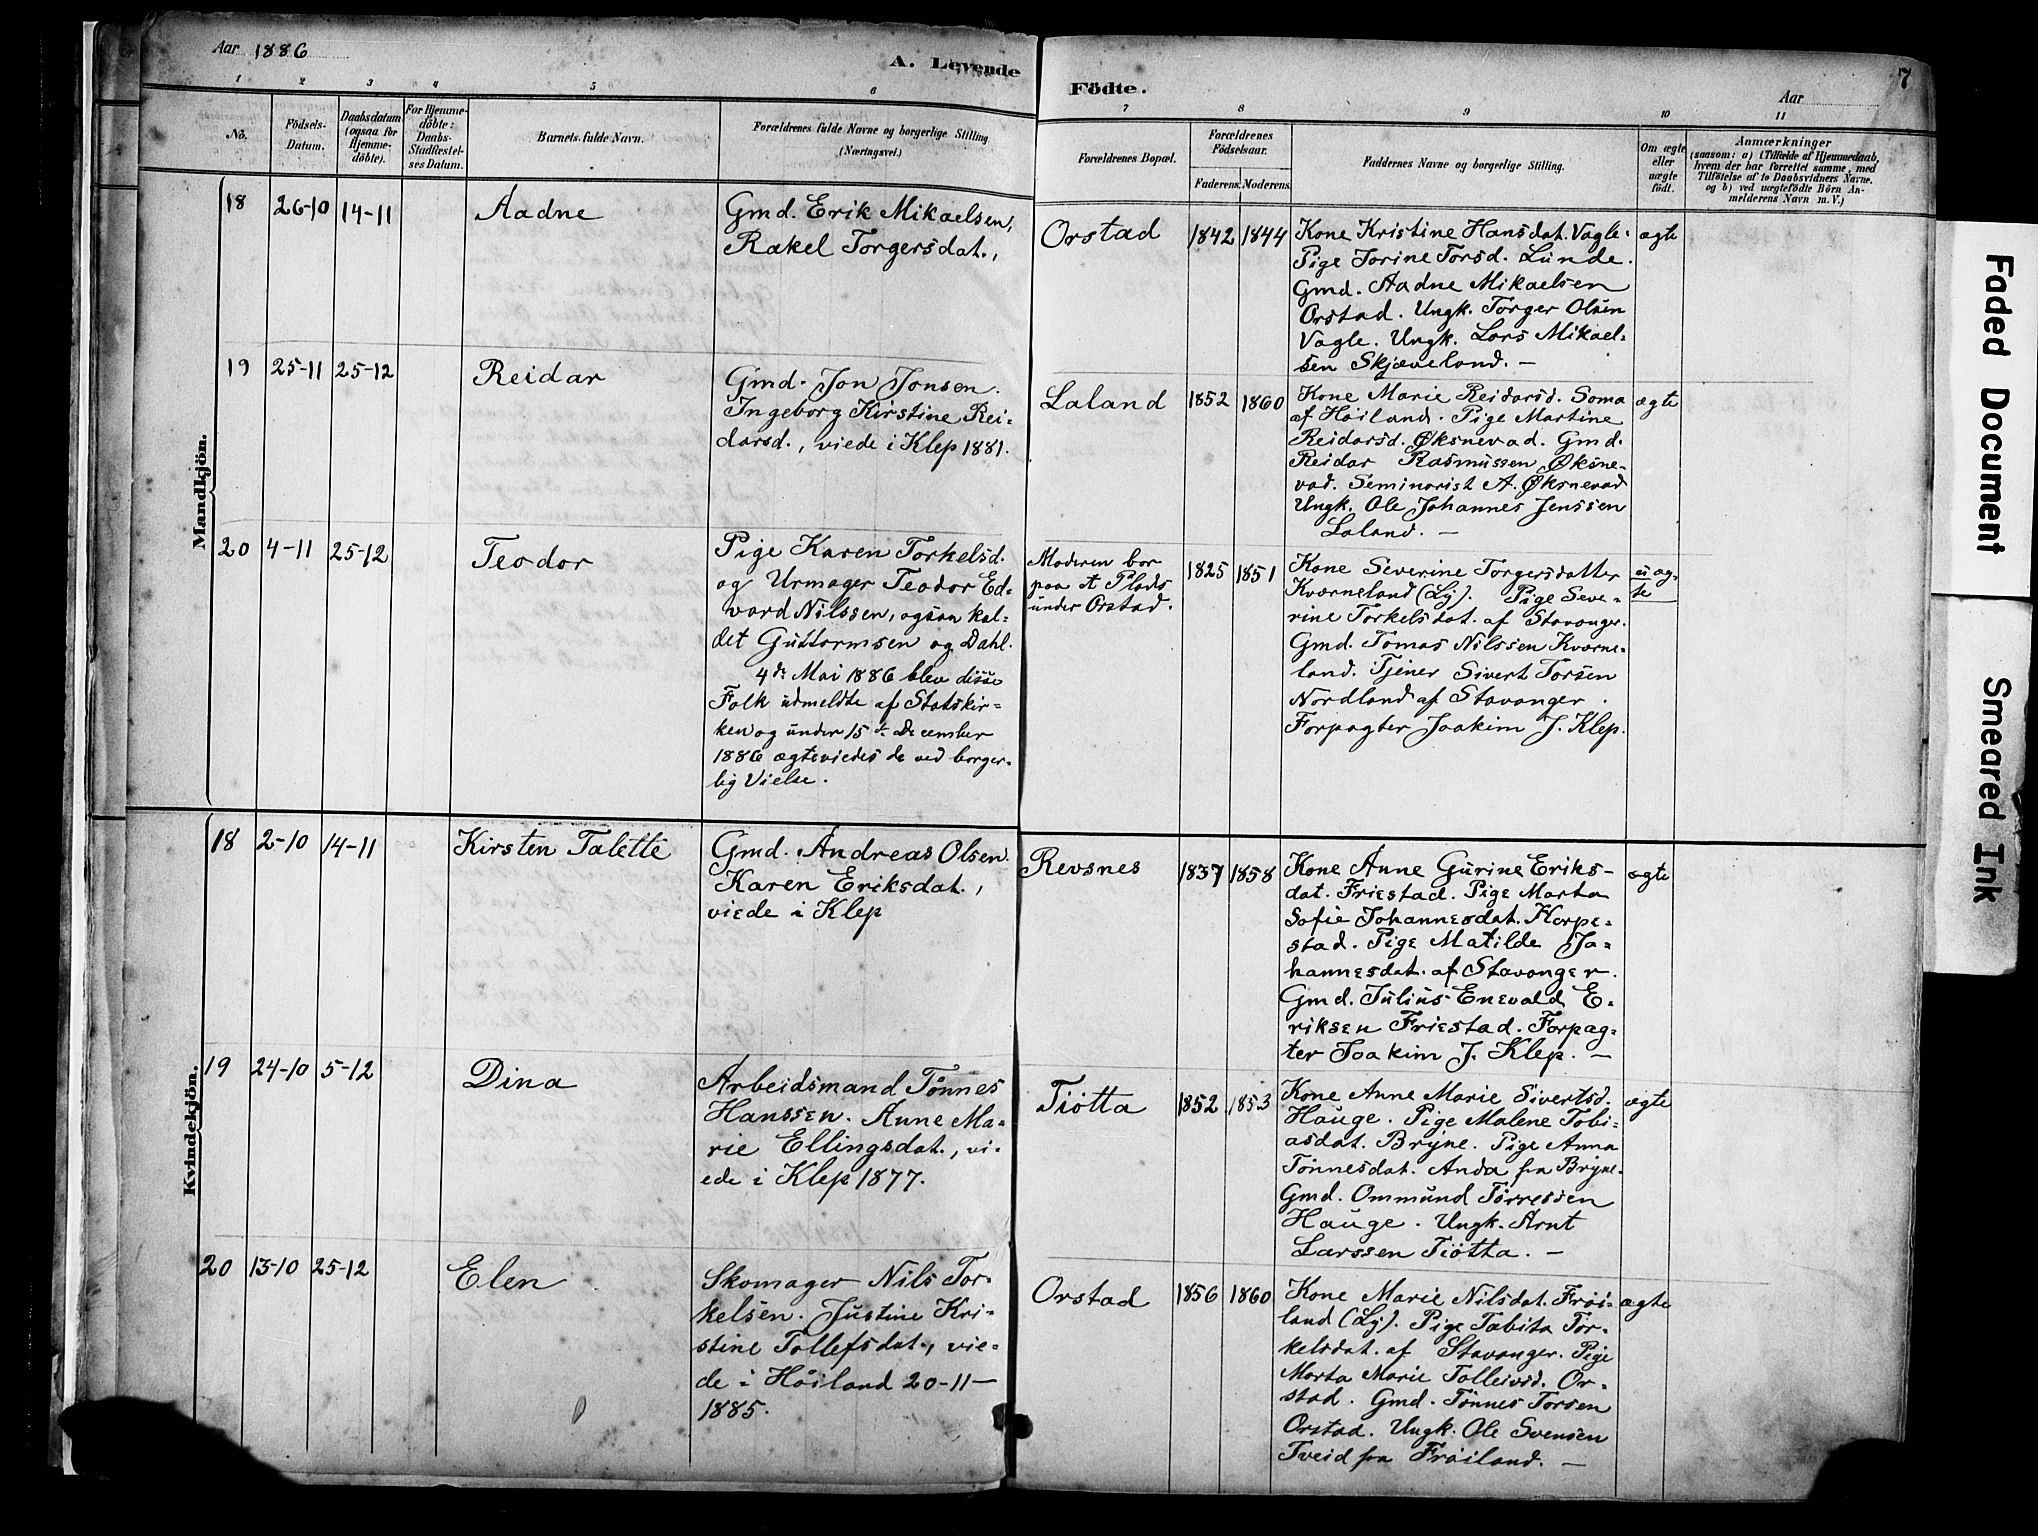 Aar 1886
A. Levende
Födte.
Aar
7
1 2 3 4 5 6 7 8 9 10 11
No.
Födsels-
Datum.
Daabsdatum
(ogsaa for
Hjemme-
döbte).
For Hjemme-
döbte:
Daabs-
Stadfæstel-
ses Datum.
Barnets fulde Navn.
Forældrenes fulde Navne og borgerlige Stilling
(Næringsvei.)
Forældrenes Bopæl.
Forældrenes
Födselsaar.
Faderens. Moderens.
Faddernes Navne og borgerlige Stilling.
Om ægte
eller
uægte
födt.
Anmærkninger
(saasom: a) i Tilfælde af Hjemmedaab,
hvem der har forrettet samme, med
Tilföielse af to Daabsvidners Navne,
og b) ved uægtefödte Börn An-
melderens Navn m. V.)
Mandkjön.
18 26-10 14-11 Aadne
Gmd. Erik Mikaelsen,
Rakel Torgersdat.,
Orstad 1842 1844
Kone Kristine Hansdat. Vagle.
Pige Torine Torsd. Lunde.
Gmd. Aadne Mikaelsen
Orstad. Ungk. Torger Olsen
Vagle. Ungk. Lars Mikael-
sen Skjæveland. —
ægte
19 25-11 25-12 Reidar
Gmd. Jon Jonsen.
Ingeborg Kirstine Rei-
darsd., viede i Klep 1881.
Laland 1852 1860
Kone Marie Reidarsd. Soma
af Høiland. Pige Martine
Reidarsd. Øksnevad. Gmd.
Reidar Rasmussen Øksne-
vad. Seminarist A. Øksnevad
Ungk. Ole Johannes Jenssen
Laland. —
ægte
20 4-11 25-12 Teodor
Pige Karen Torkelsd.
og Urmager Teodor Ed-
vard Nilssen, ogsaa kal-
det Guttormsen og Dahl.
4de Mai 1886 blev disse
Folk udmeldte af Statskir-
ken og under 15de December
1886 ægteviedes de ved borger-
lig Vielse.
Moderen bor
paa et Plads
under Orstad.
1825 1851
Kone Severine Torgersdatter
Kværneland (Ly). Pige Seve-
rine Torkelsdat. af Stavanger.
Gmd. Tomas Nilssen Kværne-
land. Tjener Sivert Torsen
Nordland af Stavanger.
Forpagter Joakim J. Klep.
uæg-
te
Kvindekjön.
18 2-10 14-11 Kirsten Talette
Gmd. Andreas Olsen.
Karen Eriksdat.,
viede i Klep
Revsnes 1837 1858
Kone Anne Gurine Eriks-
dat. Friestad. Pige Marta
Sofie Johannesdat. Horpe-
stad. Pige Matilde Jo-
hannesdat. af Stavanger.
Gmd. Julius Enevald E-
riksen Friestad. Forpag-
ter Joakim J. Klep. —
ægte
19 24-10 5-12 Dina
Arbeidsmand Tønnes
Hanssen. Anne Ma-
rie Ellingsdat., vi-
ede i Klep 1877.
Tiøtta 1852 1853
Kone Anne Marie Sivertsd.
Hauge. Pige Malene Tobi-
asdat. Bryne. Pige Anna
Tønnesdat. Anda fra Bryne.
Gmd. Ommund Tørressen
Hauge. Ungk. Arnt
Larssen Tiøtta. —
ægte
20 13-10 25-12 Elen
Skomager Nils Tor-
kelsen. Justine Kri-
stine Tollefsdat., vie-
de i Høiland 20-11-
1885.
Orstad 1856 1860
Kone Marie Nilsdat. Frøi-
land (Ly). Pige Tabita Tor-
kelsdat. af Stavanger. Pige
Marta Marie Tolleivsd. Or-
stad. Gmd. Tønnes Torsen
Orstad. Ungk. Ole Svensen
Tveid fra Frøiland. —
ægte
Faded Document
Smeared Ink